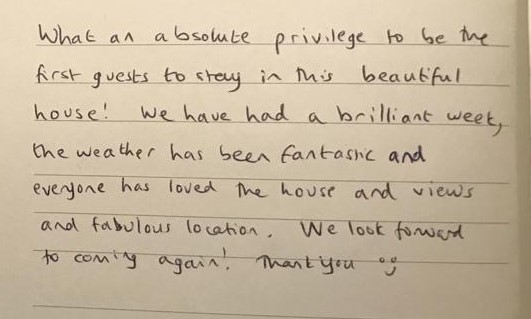 What an absolute privilege to be the
first guests to stay in this beautiful
house! We have had a brilliant week,
the weather has been fantastic and
everyone has loved the house and views
and fabulous location. We look forward
to coming again! Thank you